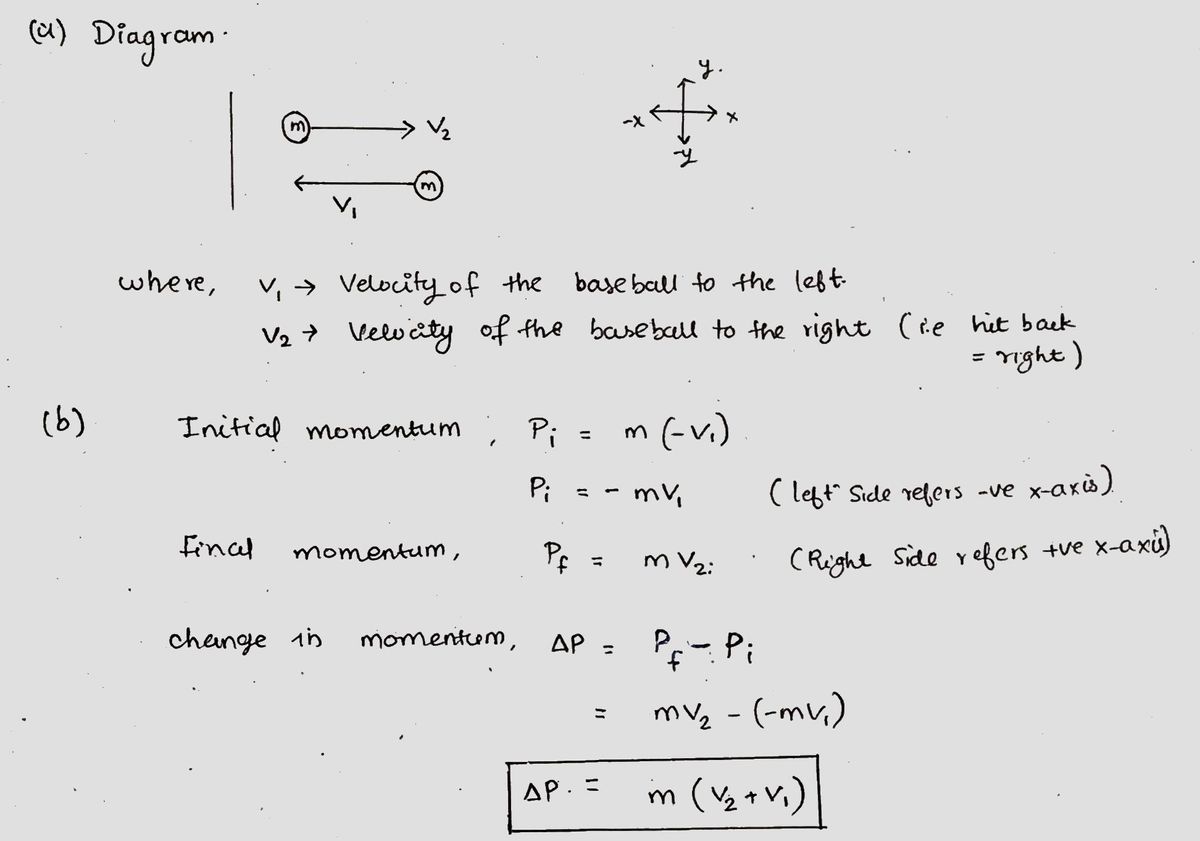 (a) Diagram.
m → V₂
y.
-x x
-y
← m
V₁
where, V₁ → Velocity of the baseball to the left.
V₂ → Velocity of the baseball to the right (i.e hit back
= right)
(b) Initial momentum, Pi = m (-V₁)
Pi = - mV₁ (left side refers -ve x-axis)
final momentum, Pf = m V₂: (Right side refers +ve x-axis)
change in momentum, ΔP = Pf - Pi
= mV₂ - (-mV₁)
ΔP. = m (V₂ + V₁)